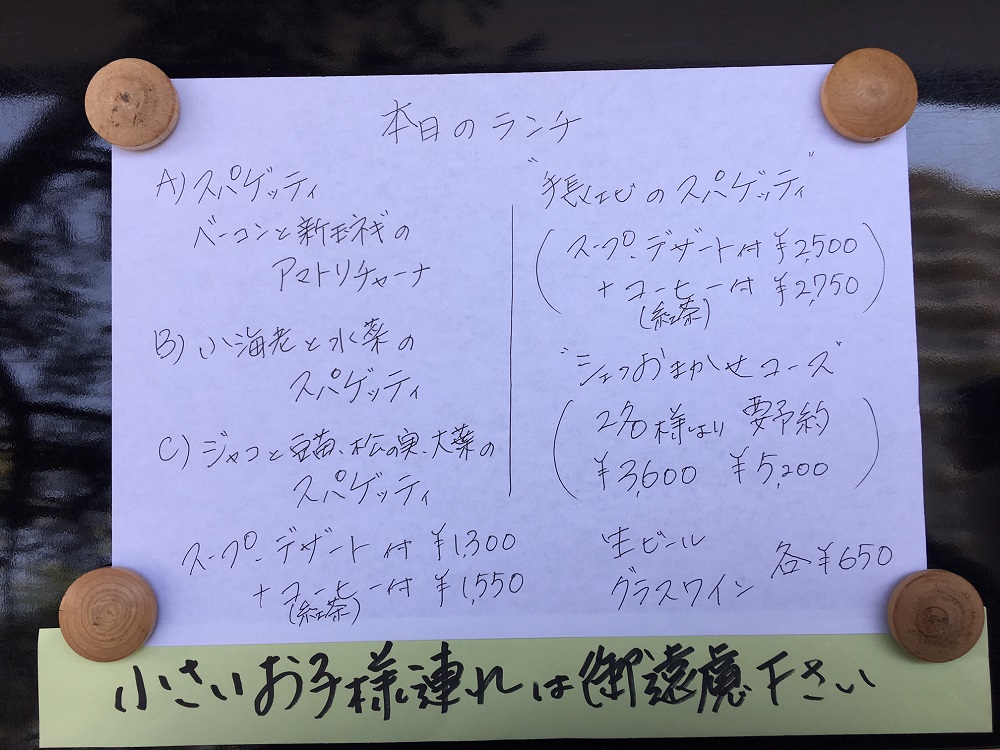 本日のランチ
A) スパゲッティ
ベーコンと新玉ネギの
アマトリチャーナ
B) 小海老と水菜の
スパゲッティ
C) ジャコと豆苗、松の実、大葉の
スパゲッティ
スープ・デザート付 ¥1,300
+コーヒー付 ¥1,550
(紅茶)
"手長エビのスパゲッティ"
(スープ・デザート付 ¥2,500
+コーヒー付 ¥2,750)
(紅茶)
"シェフおまかせコース"
(2名様より 要予約
¥3,600 ¥5,200)
生ビール
グラスワイン
各¥650
小さいお子様連れは御遠慮下さい